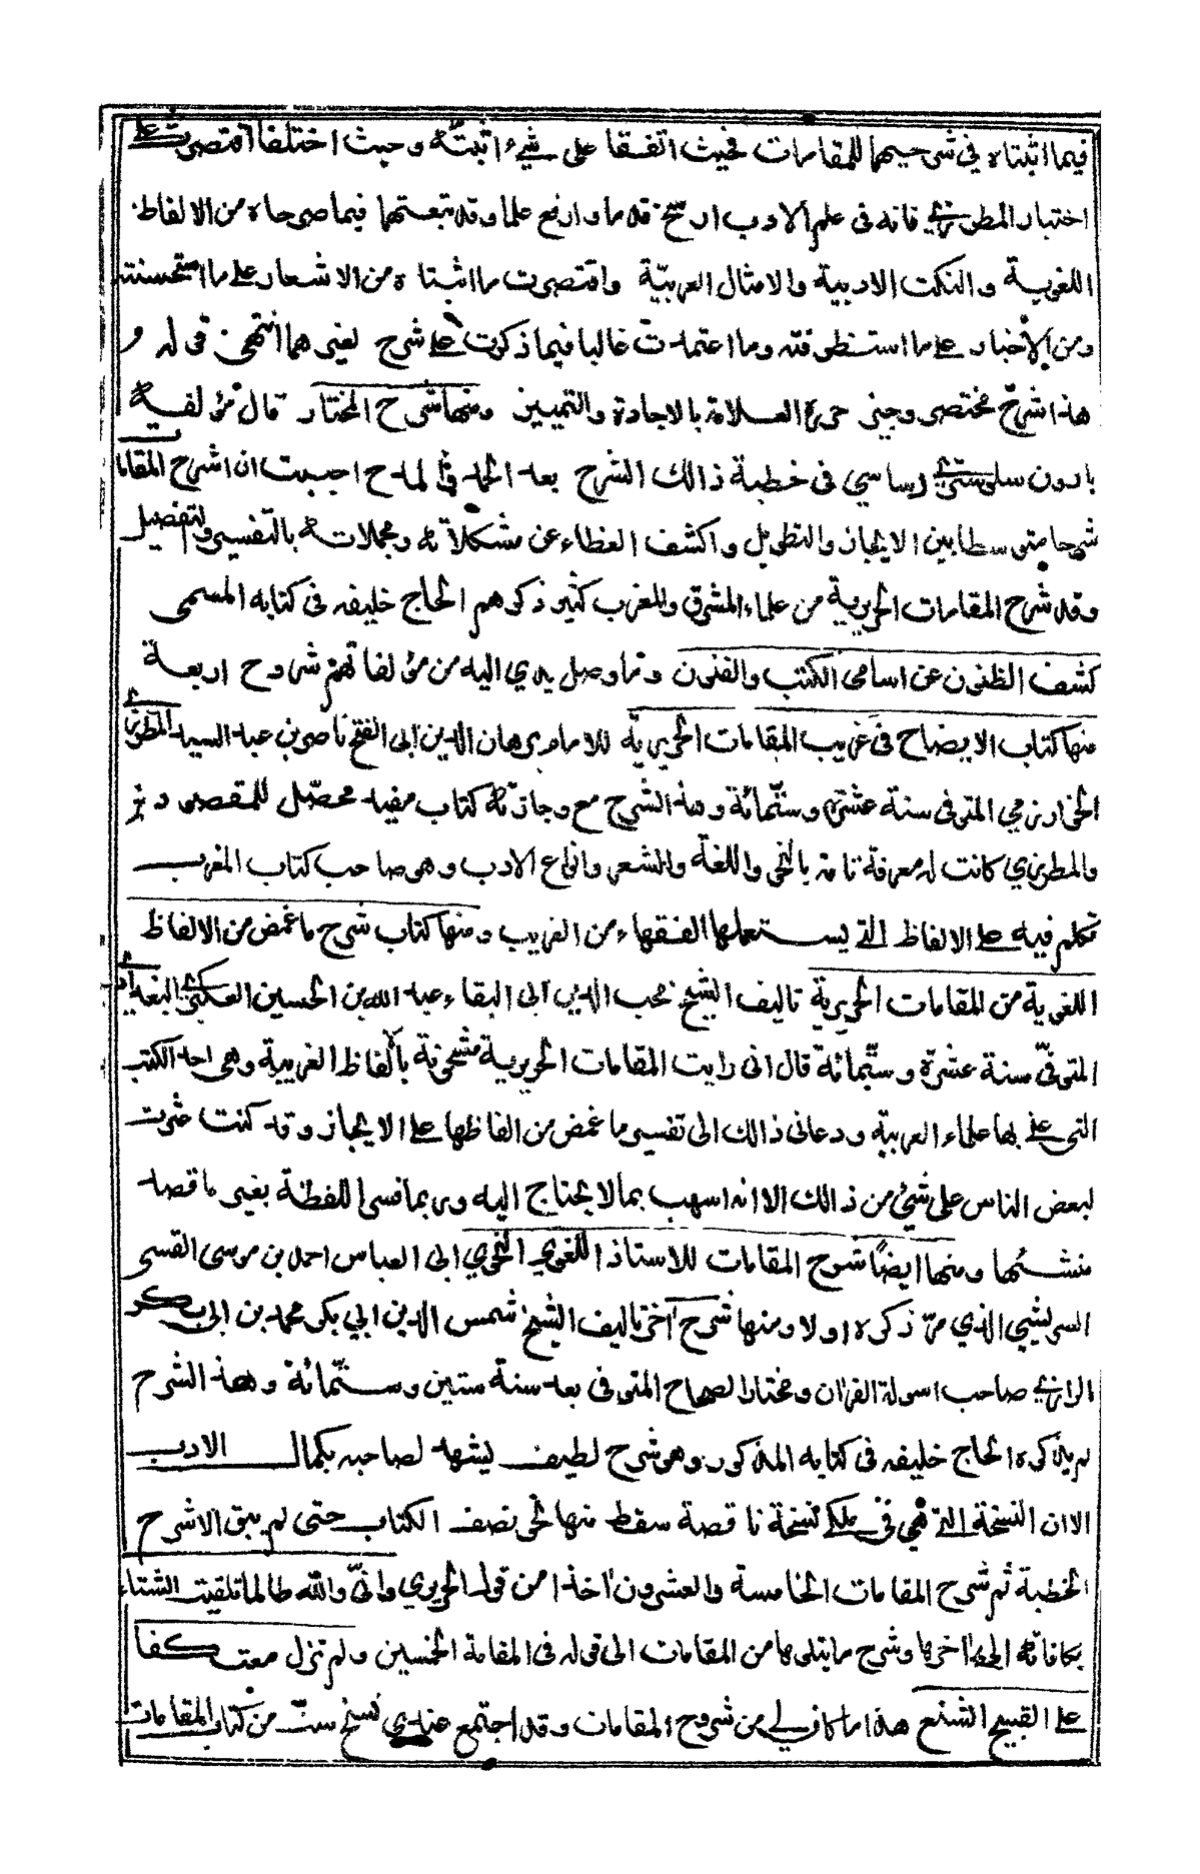 فيما اثبتاه في شرحيهما للمقامات فحيث اتفقا على شيء اثبته وحيث اختلفا اقتصرت على
اختيار المطرزي فانه في علم الادب ارسخ قدما وارفع علما وقد تبعتهما فيما صرحاه من الالفاظ
اللغوية والنكت الادبية والامثال العربيّة واقتصرت مما اثبتاه من الاشعار على ما استحسنته
ومن الاخبار على ما استظرفته وما اعتمدت غالبا فيما ذكرت على شرح لغيرهما انتهى قوله و
هذا شرح مختصر وجيز حرره العلامة بالاجادة والتمييز ومنها شرح المختار قال مؤلفه
بارون سلوستري دساسي في خطبة ذالك الشرح بعد الحمد والمدح احببت ان اشرح المقامات
شرحا متوسطا بين الايجاز والتطويل واكشف الغطاء عن مشكلاته ومجملاته بالتفسير والتفصيل
وقد شرح المقامات الحريرية من علماء المشرق والمغرب كثير ذكرهم الحاج خليفه في كتابه المسمى
كشف الظنون عن اسامي الكتب والفنون ومما وصل يدي اليه من مؤلفاتهم شروح اربعة
منها كتاب الايضاح في غريب المقامات الحريرية للامام برهان الدين ابي الفتح ناصر بن عبد السيد المطرزي
الخوارزمي المتوفى سنة عشرة وستّمائة وهذا الشرح مع وجازته كتاب مفيد محصّل للمقصود
والمطرزي كانت له معرفة تامة بالنحو واللغة والشعر وانواع الادب وهو صاحب كتاب المغرب
تكلم فيه على الالفاظ التي يستعملها الفقهاء من الغريب ومنها كتاب شرح ما غمض من الالفاظ
اللغوية من المقامات الحريرية تاليف الشيخ محب الدين ابي البقاء عبد الله بن الحسين العكبري البغدادي
المتوفّى سنة عشرة وستّمائة قال اني رايت المقامات الحريرية مشحونة بالفاظ الغريبة وهي احد الكتب
التي عني بها علماء العربية ودعاني ذالك الى تفسير ما غمض من الفاظها على الايجاز وقد كنت عثرت
لبعض الناس على شئ من ذالك الا انه اسهب بما لا يحتاج اليه وربما فسر اللفظة بغير ما قصد
منشئها ومنها ايضًا شرح المقامات للاستاذ اللغوي النحوي ابى العباس احمد بن موسى القسي
السريشي الذي مرّ ذكره اولا ومنها شرح آخر تاليف الشيخ شمس الدين ابي بكر محمد بن ابي بكر
الرازي صاحب اسولة القرآن ومختار الصحاح المتوفى بعد سنة ستين وستّمائة وهذا الشرح
لم يذكره الحاج خليفه في كتابه المذكور وهو شرح لطيف يشهد لصاحبه بكمال الادب
الا ان النسخة التي هي في ملكي نسخة ناقصة سقط منها نحو نصف الكتاب حتى لم يبق الا شرح
الخطبة ثم شرح المقامات الخامسة والعشرون اخذا من قول الحريري وانّي والله طالما تلقيت الشتاء
بكافاته الى آخرها وشرح ما يتلوها من المقامات الى قوله في المقامة الخمسين ولم تزل معتكفا
على القبيح الشنع هذا ما كان لي من شروح المقامات وقد اجتمع عندي نسخ ستّ من كتاب المقامات